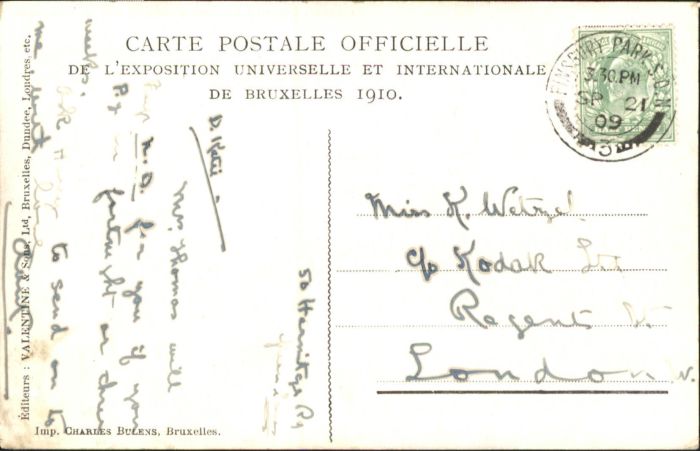 CARTE POSTALE OFFICIELLE
DE L'EXPOSITION UNIVERSELLE ET INTERNATIONALE
DE BRUXELLES 1910.
FINSBURY PARK S.O.N.
3.30 PM
SP 21
09
Miss K. Wetzel
c/o Kodak Ltd
Regent St
London W.
50 Hermitage Rd
D. Katie.
Mrs. Thomas will
N.D. for you if you
fortnight or three
to send on to
weeks.
Editeurs : VALENTINE & Sons, Ltd, Bruxelles, Dundee, Londres, etc.
Imp. CHARLES BULENS, Bruxelles.